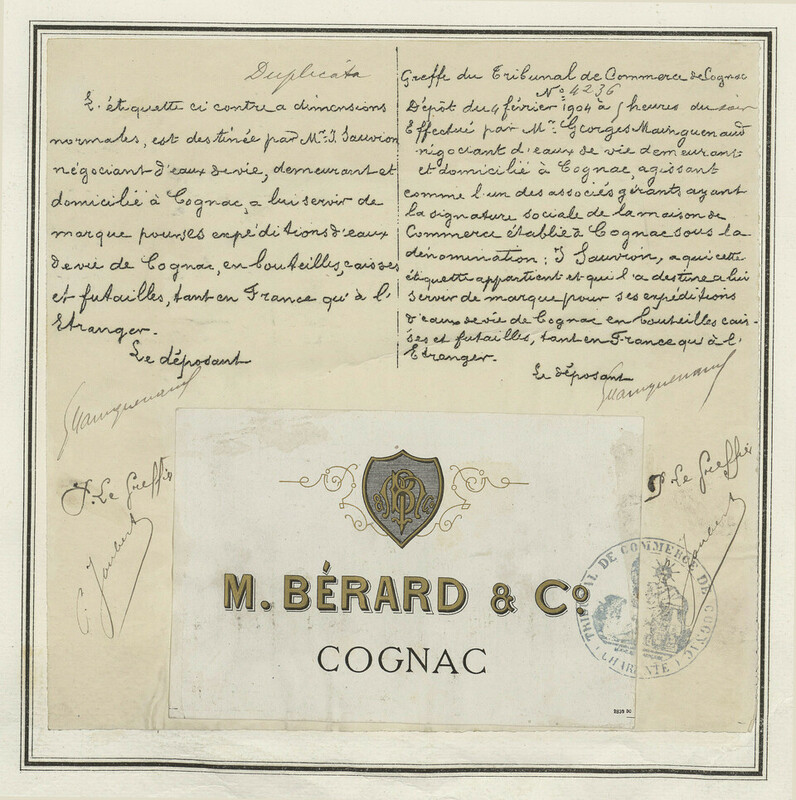 Duplicata
L'étiquette ci contre a dimensions
normales, est destinée par Mr. J. Sauvion
négociant d'eaux de vie, demeurant et
domicilié à Cognac, a lui servir de
marque pour ses expéditions d'eaux
de vie de Cognac, en bouteilles, caisses
et futailles, tant en France qu'à l'
Etranger.
Le déposant
Mainguenaud
P. Le Greffier
Greffe du Tribunal de Commerce de Cognac
No. 4236
Dépôt du 4 février 1904 à 5 heures du soir
Effectué par Mr. Georges Mainguenaud
négociant d'eaux de vie demeurant
et domicilié à Cognac, agissant
comme l'un des associés gérants ayant
la signature sociale de la maison de
Commerce établie à Cognac sous la
dénomination : J Sauvion, a qui cette
étiquette appartient et qui l'a destine a lui
servir de marque pour ses expéditions
d'eaux de vie de Cognac en bouteilles cais-
ses et futailles, tant en France qu'à l'
Etranger.
Le déposant
Mainguenaud
P. Le Greffier
M. BÉRARD & Co
COGNAC
TRIBUNAL DE COMMERCE DE COGNAC
CHARENTE